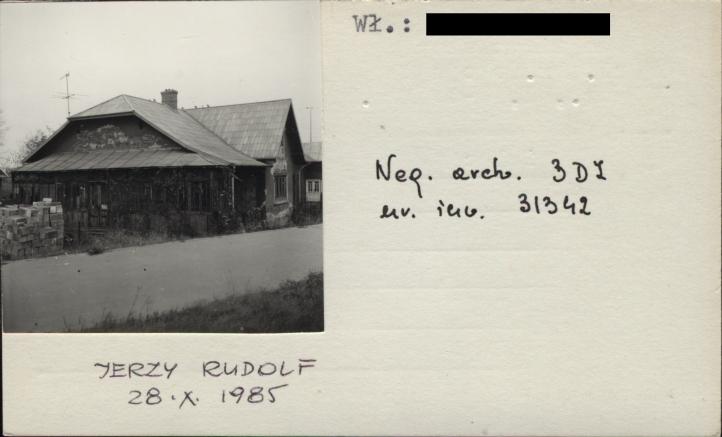 WŁ.:
Neg. arch. 3DI
nr. inw. 31342
JERZY RUDOLF
28.X. 1985